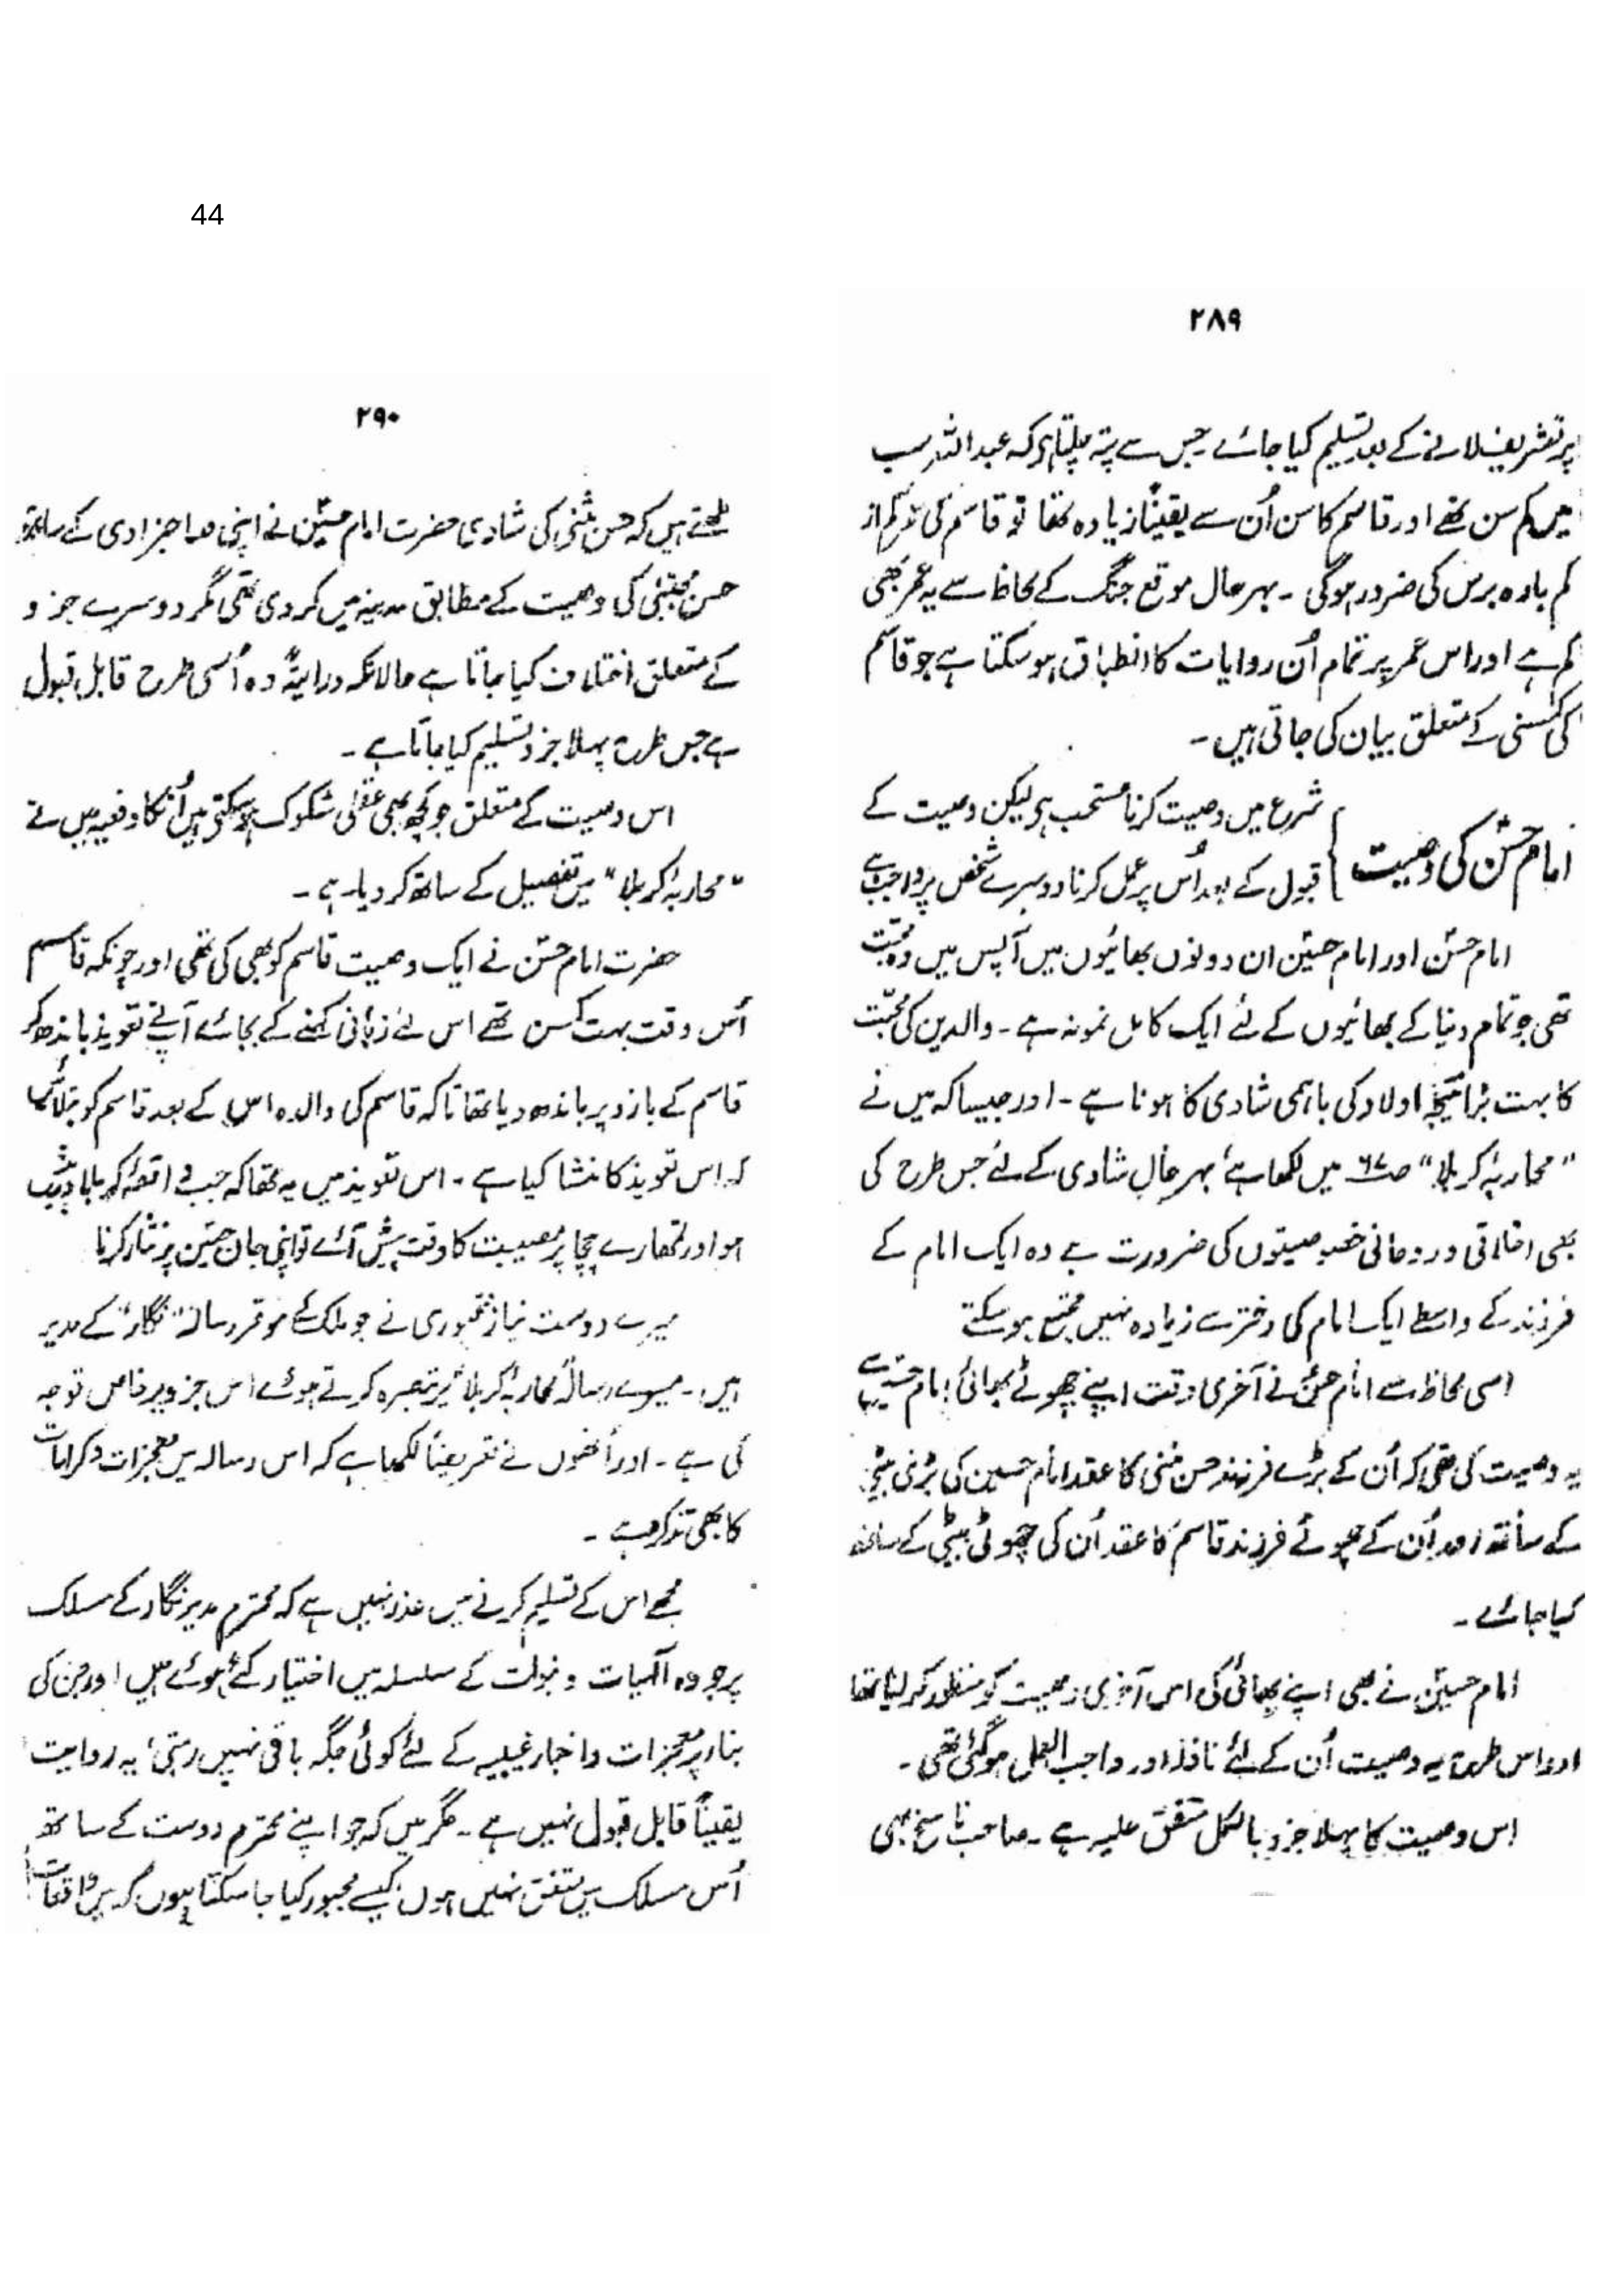 44
۲۸۹
پر تشریف لانے کے بعد تسلیم کیا جائے جس سے پتہ چلتا ہر کہ عبداللہ سب
میں کم سن تھے اور قاسم کا سن اُن سے یقیناً زیادہ تھا تو قاسم کی عمر کم از
کم بارہ برس کی ضرور ہوگی ۔ بہر حال موقع جنگ کے لحاظ سے یہ عمر بھی
کم ہے اور اس عمر پر تمام اُن روایات کا انطباق ہو سکتا ہے جو قاسم
کی کمسنی کے متعلق بیان کی جاتی ہیں ۔
امام حسنؑ کی وصیت } شرع میں وصیت کرنا مستحب ہر لیکن وصیت کے
قبول کے بعد اُس پر عمل کرنا دوسرے شخص پر واجب ہے
امام حسنؑ اور امام حسینؑ ان دونوں بھائیوں میں آپس میں وہ محبّت
تھی جو تمام دنیا کے بھائیوں کے لئے ایک کامل نمونہ ہے ۔ والدین کی محبّت
کا بہت بڑا نتیجہ اولاد کی باہمی شادی کا ہونا ہے ۔ اور جیسا کہ میں نے
”محاربۂ کربلا“ ص۶۷ میں لکھا ہے، بہر حال شادی کے لئے جس طرح کی
بھی اخلاقی و روحانی خصوصیتوں کی ضرورت ہے وہ ایک امام کے
فرزند کے واسطے ایک امام کی دختر سے زیادہ نہیں مجتمع ہو سکتے
اسی لحاظ سے امام حسنؑ نے آخری وقت اپنے چھوٹے بھائی امام حسینؑ سے
یہ وصیت کی تھی کہ اُن کے بڑے فرزند حسن مثنی کا عقد امام حسین کی بڑی بیٹی
کے ساتھ اور اُن کے چھوٹے فرزند قاسم کا عقد اُن کی چھوٹی بیٹی کے ساتھ
کیا جائے ۔
امام حسینؑ نے بھی اپنے بھائی کی اس آخری وصیت کو منظور کر لیا تھا
اور اس طرح یہ وصیت اُن کے لئے نافذ اور واجب العمل ہوگئی تھی ۔
اس وصیت کا پہلا جزو بالکل متفق علیہ ہے ۔ صاحب ناسخ بھی
۲۹۰
لکھتے ہیں کہ حسن مثنیٰ کی شادی حضرت امام حسینؑ نے اپنی صاحبزادی کے ساتھ
حسن مجتبیٰ کی وصیت کے مطابق مدینہ میں کر دی تھی مگر دوسرے جزو
کے متعلق اختلاف کیا جاتا ہے حالانکہ درایتہً وہ اُسی طرح قابل قبول
ہے جس طرح پہلا جزو تسلیم کیا جاتا ہے ۔
اس وصیت کے متعلق جو کچھ بھی عقلی شکوک ہو سکتے ہیں اُنکا دفعیہ میں نے
”محاربۂ کربلا“ میں تفصیل کے ساتھ کر دیا ہے ۔
حضرت امام حسنؑ نے ایک وصیت قاسم کو بھی کی تھی اور چونکہ قاسم
اُس وقت بہت کمسن تھے اس لئے زبانی کہنے کے بجائے آپنے تعویذ باندھ کر
قاسم کے بازو پر باندھ دیا تھا تاکہ قاسم کی والدہ اس کے بعد قاسم کو بتلائیں
کہ اس تعویذ کا منشا کیا ہے ۔ اس تعویذ میں یہ تھا کہ جب واقعۂ کربلا درپیش
ہو اور تمھارے چچا پر مصیبت کا وقت پیش آئے تو اپنی جان حسین پر نثار کرنا
میرے دوست نیاز فتحپوری نے جو ملک کے موقر رسالہ ”نگار“ کے مدیر
ہیں ۔ میرے رسالہ ”محاربۂ کربلا“ پر تبصرہ کرتے ہوئے اس جزو پر خاص توجہ
کی ہے ۔ اور اُنھوں نے تعریضاً لکھا ہے کہ اس رسالہ میں معجزات و کرامات
کا بھی تذکرہ ہے ۔
مجھے اس کے تسلیم کرنے میں عذر نہیں ہے کہ محترم مدیر نگار کے مسلک
پر جو وہ آلٰہیات و نبوات کے سلسلہ میں اختیار کئے ہوئے ہیں اور جن کی
بنا پر معجزات و اخبار غیبیہ کے لئے کوئی جگہ باقی نہیں رہتی، یہ روایت
یقیناً قابل قبول نہیں ہے ۔ مگر میں کہ جو اپنے محترم دوست کے ساتھ
اُس مسلک میں متفق نہیں ہوں کیسے مجبور کیا جا سکتا ہوں کہ میں واقعات